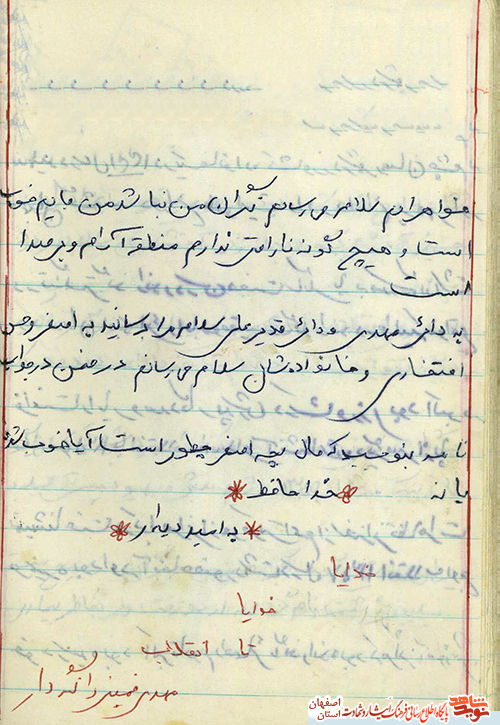 خواهرانم سلام می رسانم نگران من نباشد من حالم خوب
است و هیچ گونه ناراحتی ندارم منطقه آرام و بی صدا
است
به دائی مهدی و دائی قدیر علی سلام مرا برسانید به اصغر و حسن
افتخاری و خانواده شان سلام می رسانم در ضمن در جواب
نامه بنویسید که حال بچه اصغر چطور است آیا خوب شده
یا نه
خدا حافظ
به امید دیدار
خدایا
خدایا
تا انقلاب
مهدی خمینی را نگه دار
پایگاه اطلاع رسانی فرهنگ ایثار و شهادت
استان اصفهان
نوید شاهد